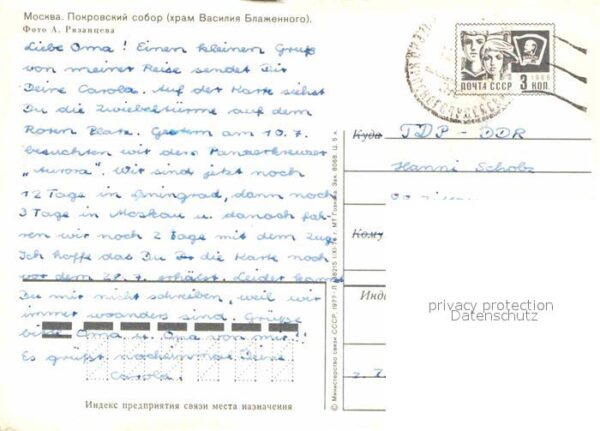 Москва. Покровский собор (храм Василия Блаженного).
Фото А. Рязанцева
Liebe Oma! Einen kleinen Gruß
von meiner Reise sendet Dir
Deine Carola. Auf der Karte siehst
Du die Zwiebeltürme auf dem
Roten Platz. Gestern am 10.7.
besuchten wir den Panzerkreuzer
"Aurora". Wir sind jetzt noch
12 Tage in Leningrad, dann noch
3 Tage in Moskau u. danach fah-
ren wir noch 2 Tage mit dem Zug.
Ich hoffe das Du Dir die Karte noch
vor dem 28.7. erhälst. Leider kannst
Du mir nicht schreiben, weil wir
immer woanders sind. Grüße
bitte Oma u. Opa von mir!!
Es grüßt nocheinmal Deine
Carola!
Индекс предприятия связи места назначения
© Министерство связи СССР, 1977
МТ Гознака. Зак. 8068. Ц. 5 к.
ПОЧТА СССР
1966
3 КОП.
Куда ГДР - DDR
Hanni Scholz
Кому
Инд
privacy protection
Datenschutz